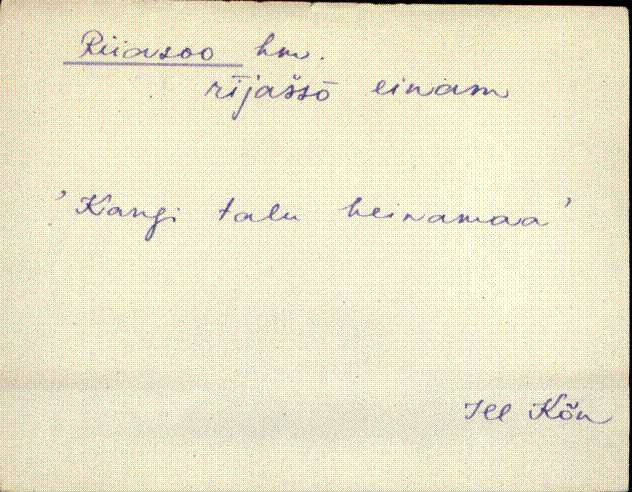 Riiasoo hm.
rījas̆sō einam
'Kangi talu heinamaa'
Jll Kõn